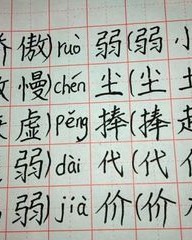 傲)ruò 弱(弱小
慢)chén 尘(尘土
虚)pěng 捧(捧
弱)dài 代(代
弱)jià 价(价